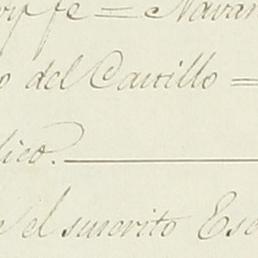 = Navar
o del Castillo =
dico.
el suscrito Esc